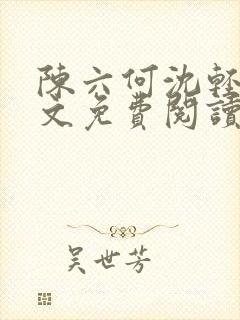 陳六何沈輕
文免費閱讀
吴世芳